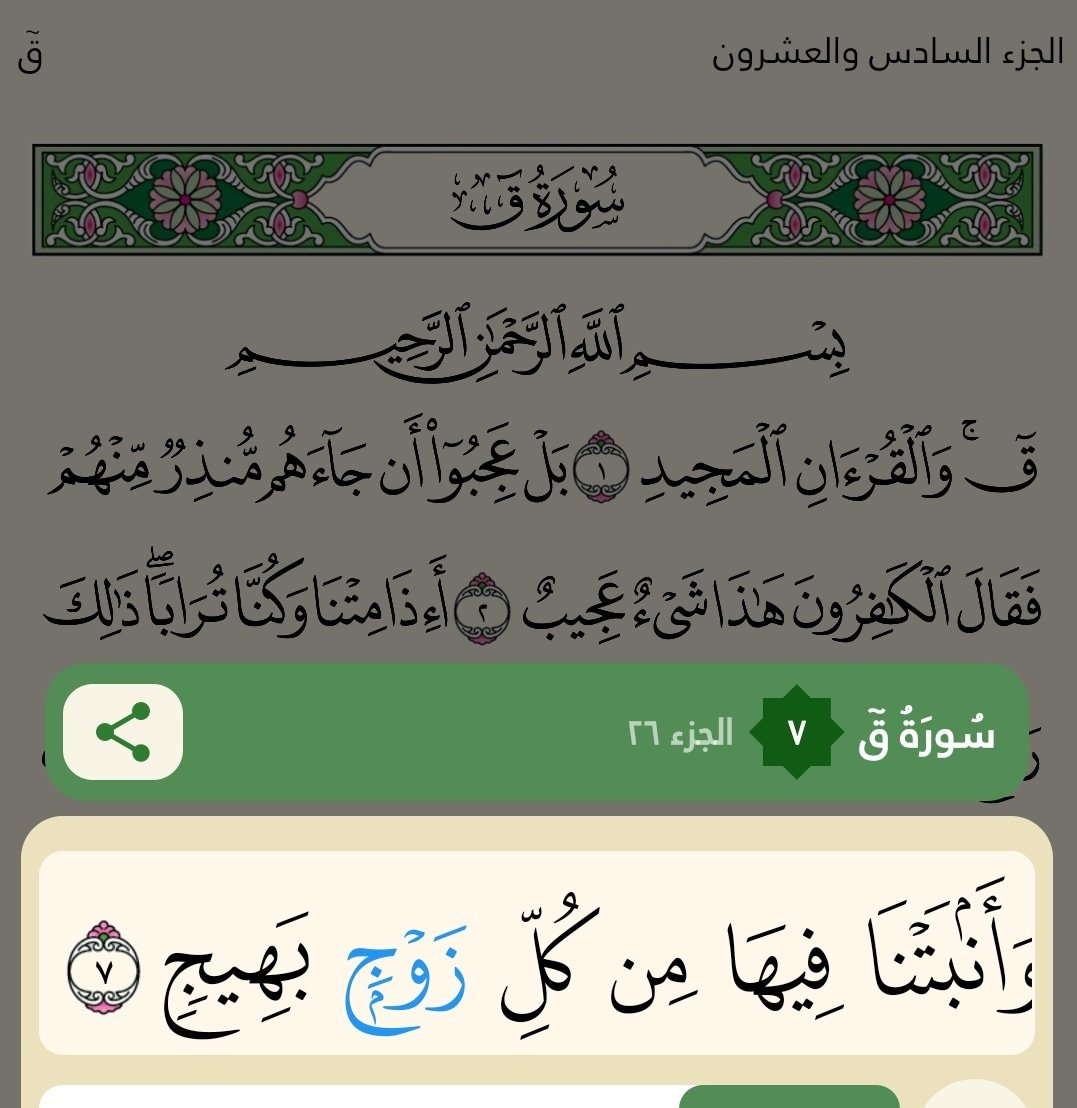 الجزء السادس والعشرون
قٓ
سُورَةُ قٓ
بِسْمِ ٱللَّهِ ٱلرَّحْمَٰنِ ٱلرَّحِيمِ
قٓۚ وَٱلْقُرْءَانِ ٱلْمَجِيدِ ١ بَلْ عَجِبُوٓا۟ أَن جَآءَهُم مُّنذِرٌ مِّنْهُمْ
فَقَالَ ٱلْكَٰفِرُونَ هَٰذَا شَىْءٌ عَجِيبٌ ٢ أَءِذَا مِتْنَا وَكُنَّا تُرَابًاۖ ذَٰلِكَ
سُورَةُ قٓ ٧ الجزء ٢٦
وَأَنۢبَتْنَا فِيهَا مِن كُلِّ زَوْجٍۭ بَهِيجٍ ٧